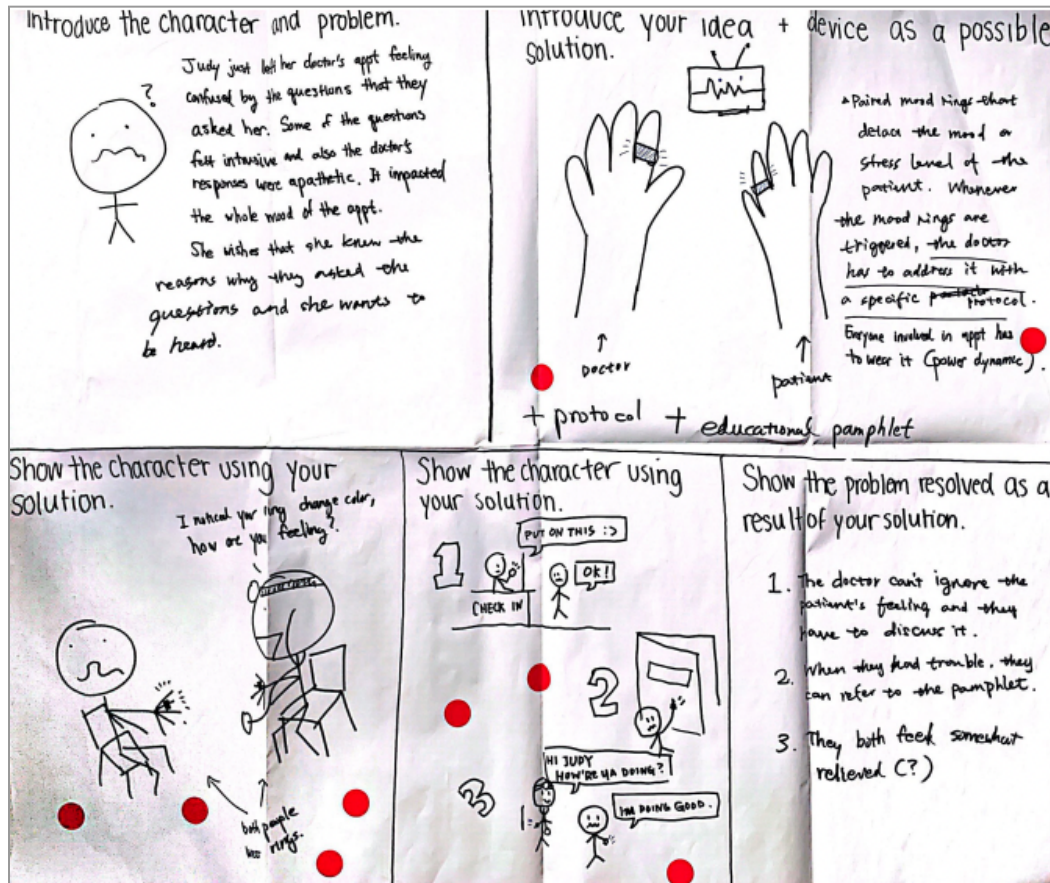 Introduce the character and problem.
?
Judy just left her doctor's appt feeling
confused by the questions that they
asked her. Some of the questions
felt intrusive and also the doctor's
responses were apathetic. It impacted
the whole mood of the appt.
She wishes that she knew the
reasons why they asked the
questions and she wants to
be heard.
Introduce your idea + device as a possible
solution.
* Paired mood rings that
detact the mood or
stress level of the
patient. Whenever
the mood rings are
triggered, the doctor
has to address it with
a specific protocol.
Everyone involved in appt has
to wear it (power dynamic).
Doctor
patient
+ protocol + educational pamphlet
Show the character using your
solution.
I noticed your ring change color,
how are you feeling?
both people
has rings.
Show the character using
your solution.
1
PUT ON THIS :>
OK!
CHECK IN
2
3
HI JUDY
HOW'RE YA DOING?
I'M DOING GOOD.
Show the problem resolved as a
result of your solution.
1. The doctor can't ignore the
patient's feeling and they
have to discuss it.
2. When they had trouble, they
can refer to the pamphlet.
3. They both feel somewhat
relieved (?)